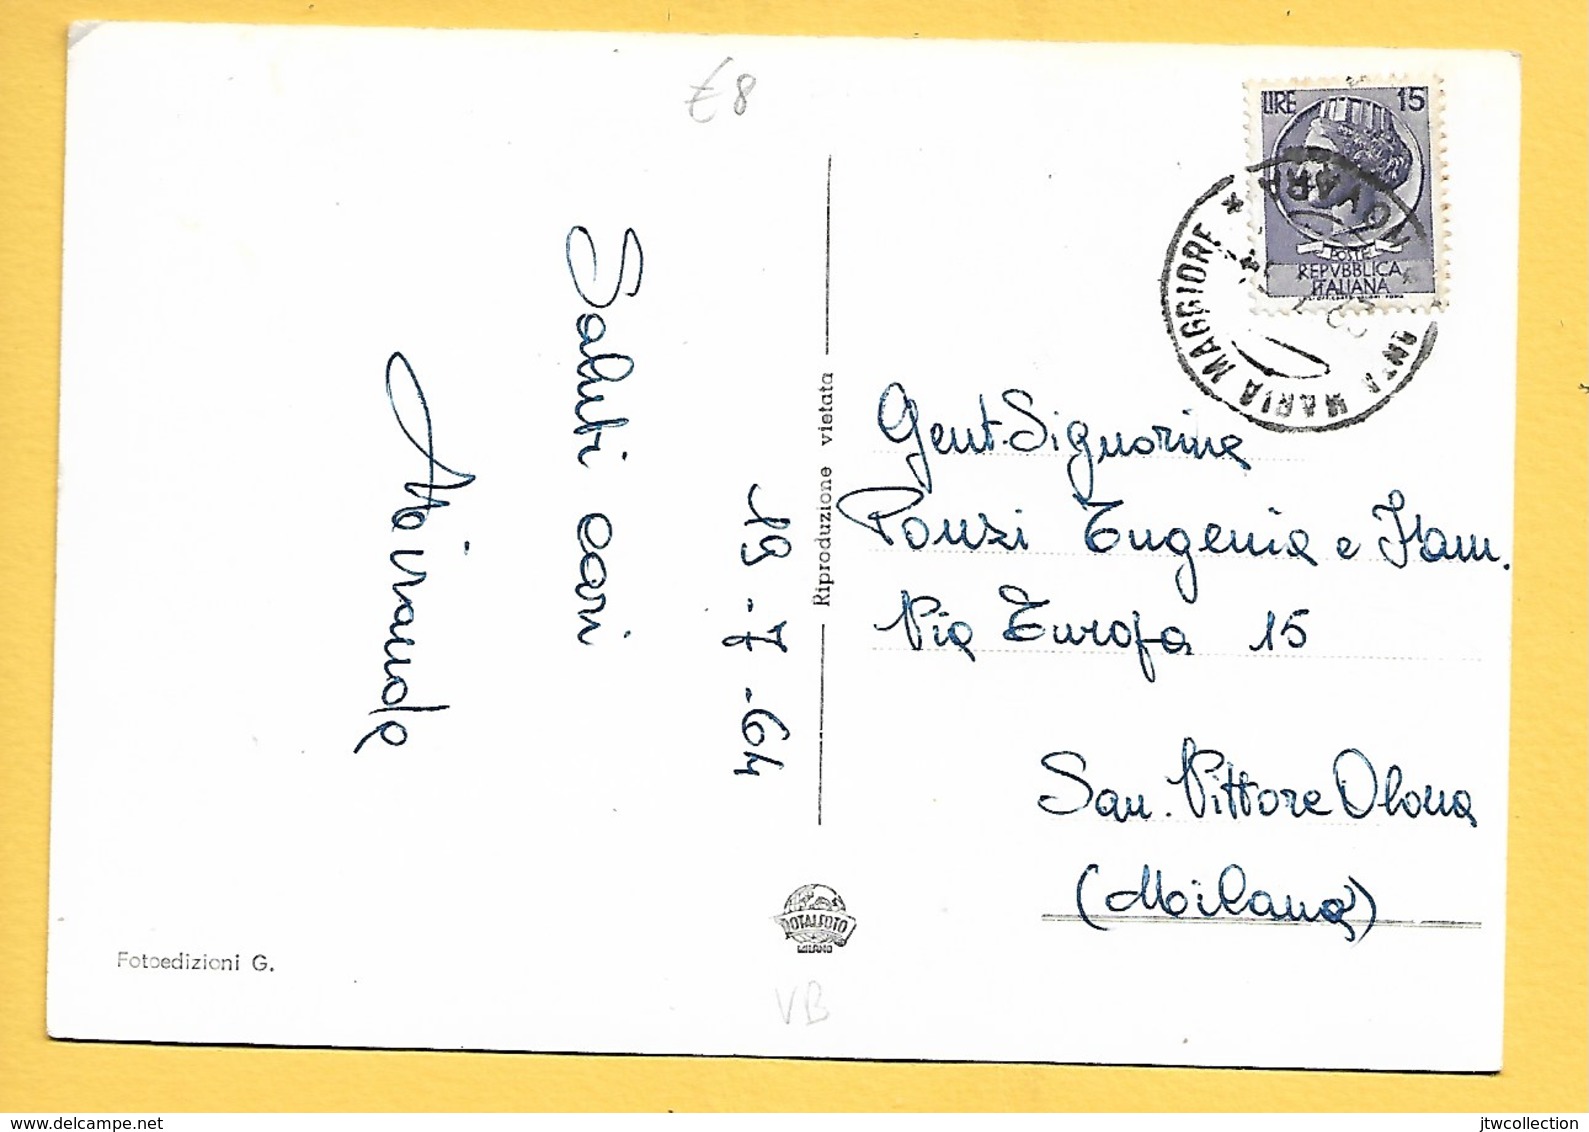 £8
LIRE 15
POSTE
REPVBBLICA
ITALIANA
SANTA MARIA MAGGIORE * NOVARA *
Saluti cari
Miranda
19-7-64
Riproduzione vietata
Gent. Signorina
Ponzi Eugenia e Fam.
Via Europa 15
San. Vittore Olona
(Milano)
TOTALFOTO
MILANO
Fotoedizioni G.
VB
delcampe.net
jtwcollection